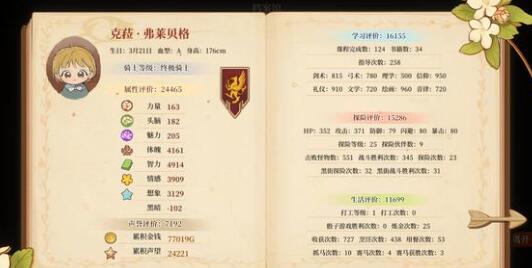 档案馆
克菈·弗莱贝格
生日：3月21日 血型：A 身高：176cm
骑士等级：终极骑士
属性评价：24465
力量 163
头脑 182
魅力 205
体魄 4161
智力 4914
情感 3909
想象 3129
黑暗 -102
声誉评价：7192
累积金钱 77019G
累积声望 24221
学习评价：16155
课程完成数：124 书籍数：34
指导次数：258
剑术：815 弓术：780 理学：500 信仰：950
礼仪：910 文学：720 绘画：960 音律：720
探险评价：15286
HP：352 攻击：371 防御：79 闪避：80 暴击：80
探险等级：25 探险伙伴：9
击败怪物数：551 战斗胜利次数：345 探险次数：23
黑街探险次数：32 黑街战斗胜利次数：31
生活评价：11699
打工等级：1 打工次数：0
骰子游戏胜利次数：0 炼金次数：25
收获次数：727 烹饪次数：438 用餐次数：53
抓马次数：10 赛马次数：4 赛马获胜次数：3
离开